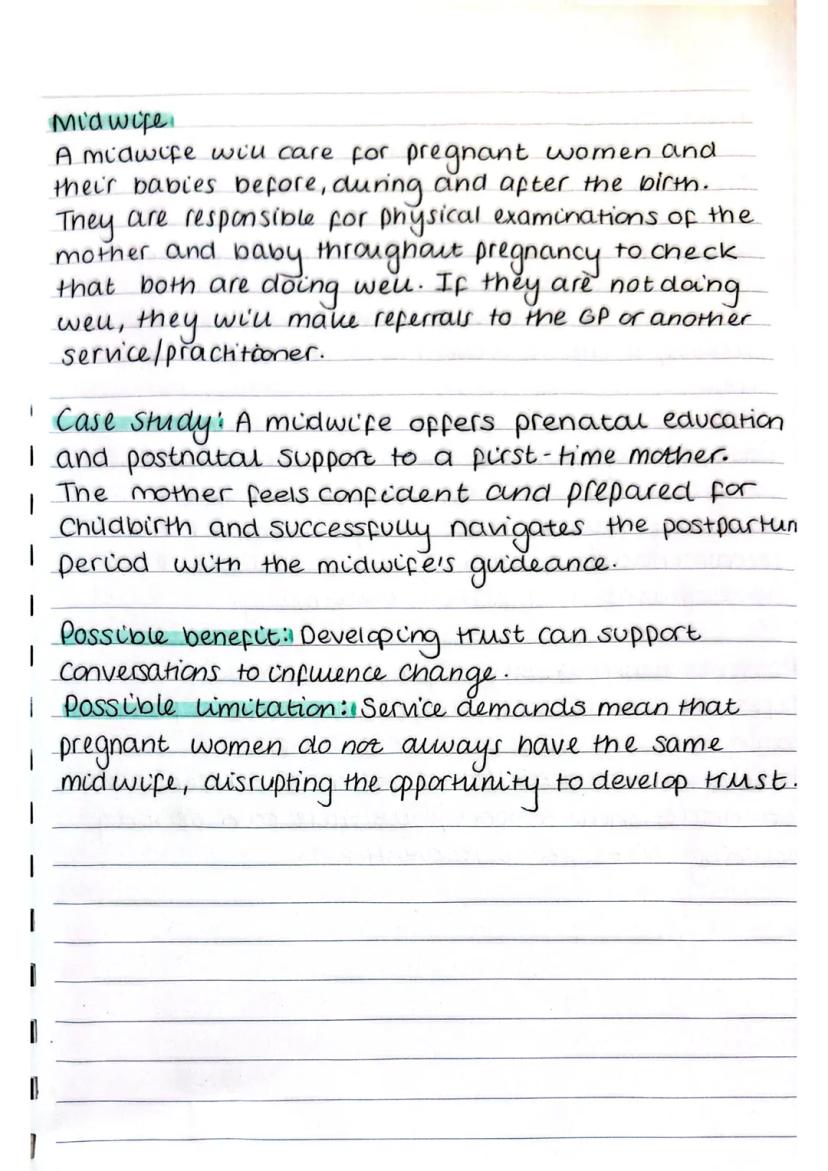 Midwife
A midwife will care for pregnant women and
their babies before, during and after the birth.
They are responsible for physical examinations of the
mother and baby throughout pregnancy to check
that both are doing well. If they are not doing
well, they will make referrals to the GP or another
service/practitioner.
Case Study: A midwife offers prenatal education
and postnatal support to a first-time mother.
The mother feels confident and prepared for
Childbirth and successfully navigates the postpartum
period with the midwife's guideance.
Possible benefit: Developing trust can support
conversations to influence change.
Possible Limitation: Service demands mean that
pregnant women do not always have the same
midwife, disrupting the opportunity to develop trust.